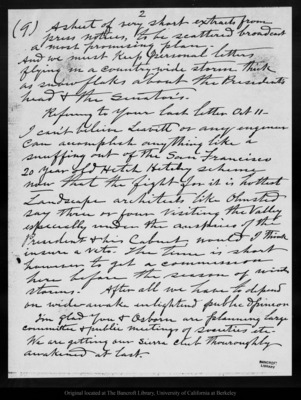 2
(9) A sheet of very short extracts from
press notices, to be scattered broadcast
a most promising plan.
And we must keep personal letters
flying in a country wide storm thick
as snow flakes about the Presidents
head & the Senators.
Refering to Your last letter Oct 11–
I can't believe Leavitt or any engineer
can accomplish anything like a
snuffing out of the San Francisco
20 year old Hetch Hetchy scheme
now that the fight for it is hottest
Landscape architects like Olmsted
say three or four visiting the Valley
especially under the auspices of the
President & his Cabinet would I think
insure a veto. The time is short
however to get a commission
here before the season of winter
storms. After all we have to depend
on wide awake enlightend public opinion
Im glad You & Osborn are planning large
committee & public meetings of societies etc.
We are getting our Sierra Club thouroughly
awakened at last.
BANCROFT
LIBRARY
Original located at The Bancroft Library, University of California at Berkeley